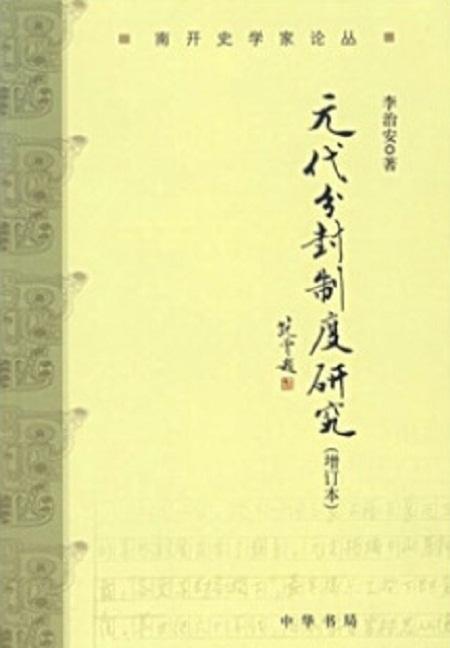 南开史学家论丛
李治安 著
元代分封制度研究
(增订本)
中华书局